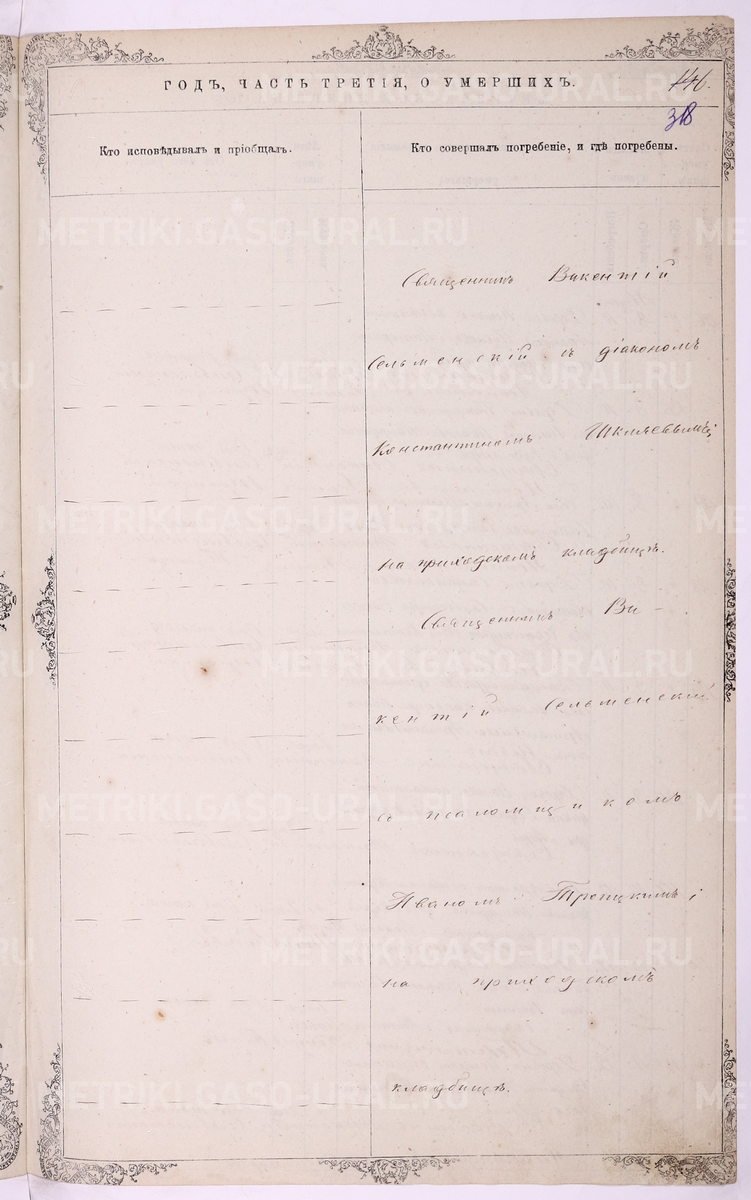 ГОДЪ, ЧАСТЬ ТРЕТІЯ, О УМЕРШИХЪ.
318
Кто исповѣдывалъ и пріобщалъ.
Кто совершалъ погребеніе, и гдѣ погребены.
Священникъ Викентій
Сельменскій съ діакономъ
Константиномъ Шкляевымъ;
на приходскомъ кладбищѣ.
Священникъ Ви-
кентій Сельменскій
съ псаломщикомъ
Иваномъ Троицкимъ;
на приходскомъ
кладбищѣ.
METRIKI.GASO-URAL.RU